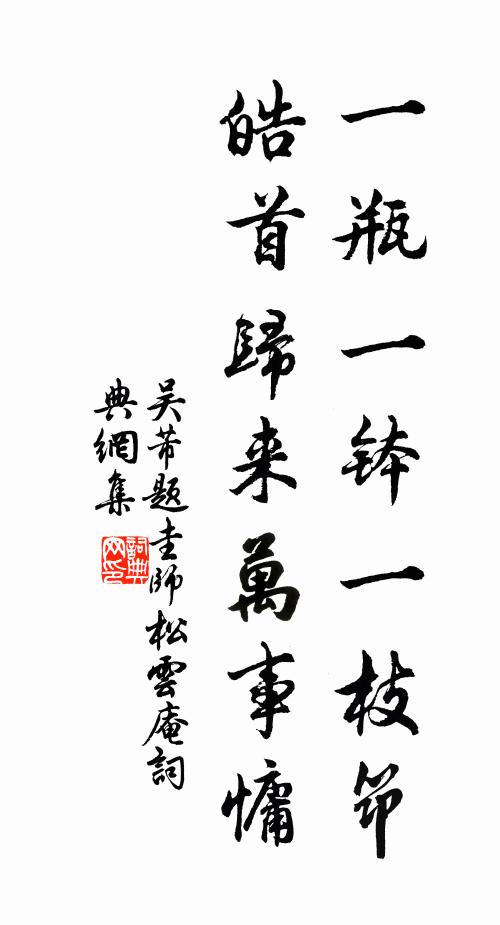 一瓶一钵一枝筇
皓首歸来萬事慵
吴芾題圭師松雲庵詞
典網集
詞典
网印